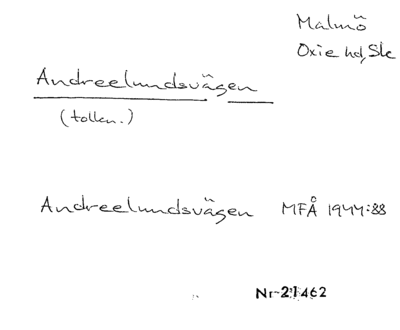 Malmö
Oxie hd, Sk
Andreelundsvägen
(tolkn.)
Andreelundsvägen MFÅ 1944:88
Nr 21462